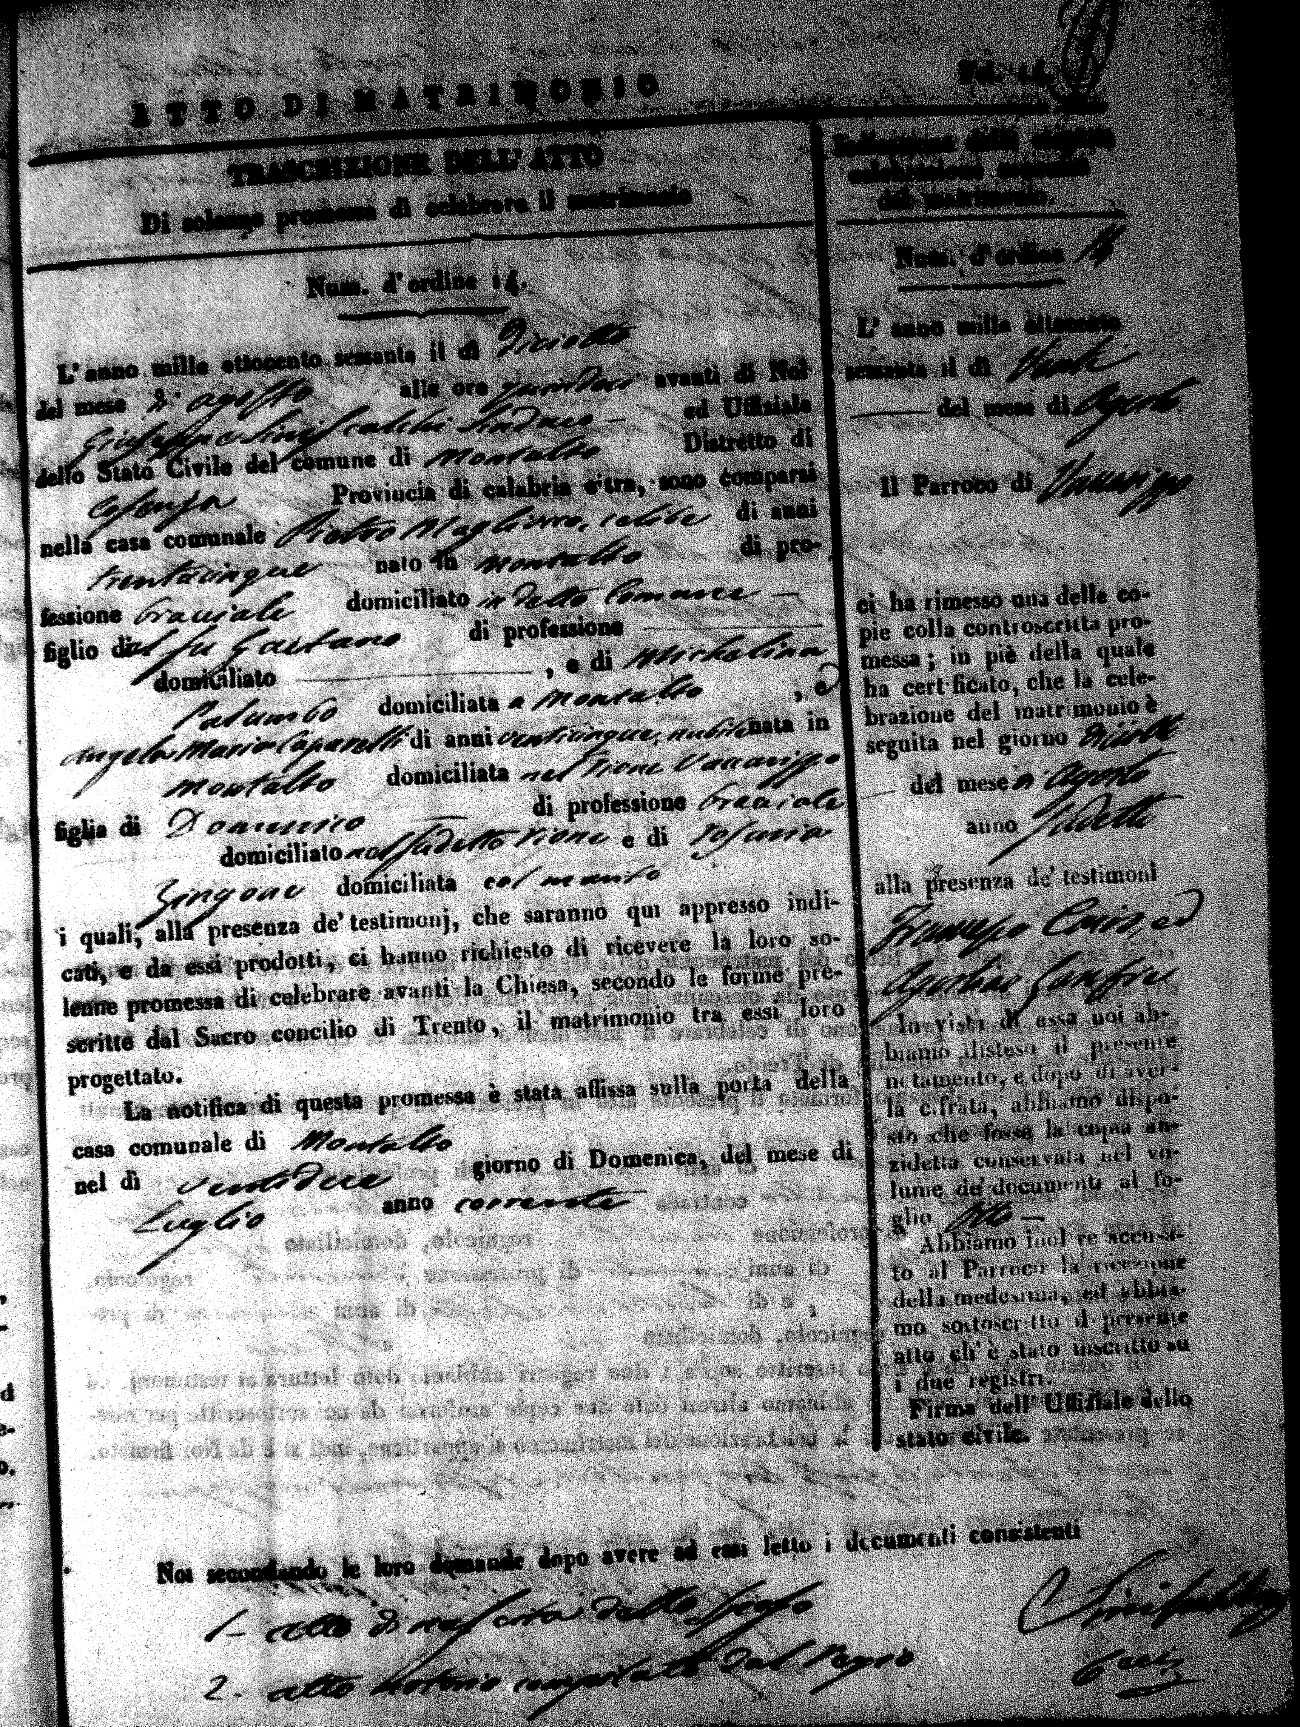 ATTO DI MATRIMONIO
TRASCRIZIONE DELL' ATTO
Di solenne promessa di celebrare il matrimonio
Num. d'ordine 14.
L'anno mille ottocento sessanta il dì Diciotto
del mese di agosto alle ore quindeci avanti di Noi
Giuseppe Sindaco ed Uffiziale
dello Stato Civile del comune di Montalto Distretto di
Cosenza Provincia di calabria citra, sono comparsi
nella casa comunale Pietro Magliocco, celibe di anni
trentacinque nato in Montalto di pro-
fessione bracciale domiciliato in detto Comune
figlio del fu Gaetano di professione
domiciliato , e di Michelina
Palumbo domiciliata a Montalto , e
Angela Maria Caparelli di anni venticinque, nubile nata in
Montalto domiciliata nel Vaccarizzo
figlia di Domenico di professione bracciale
domiciliato e di Rosaria
Zingone domiciliata col marito
i quali, alla presenza de' testimonj, che saranno qui appresso indi-
cati, e da essi prodotti, ci hanno richiesto di ricevere la loro so-
lenne promessa di celebrare avanti la Chiesa, secondo le forme pre-
scritte dal Sacro concilio di Trento, il matrimonio tra essi loro
progettato.
La notifica di questa promessa è stata affissa sulla porta della
casa comunale di Montalto
nel dì ventidue giorno di Domenica, del mese di
Luglio anno corrente
Noi secondando le loro domande dopo avere ad essi letto i documenti consistenti
1- atto di nascita dello sposo
2- atto notorio compilato dal Regio
della seguita
celebrazione
del matrimonio.
Num. d'ordine 14
L' anno mille ottocento
sessanta il dì Venti
del mese di Agosto
Il Parroco di Vaccarizzo
ci ha rimesso una delle co-
pie colla controscritta pro-
messa; in piè della quale
ha certificato, che la cele-
brazione del matrimonio è
seguita nel giorno diciotto
del mese di Agosto
anno sudetto
alla presenza de' testimoni
Giuseppe ed
In vista di essa noi ab-
biamo disteso il presente
notamento, e dopo di aver-
la cifrata, abbiamo dispo-
sto che fosse la copia an-
zidetta conservata nel vo-
lume de' documenti al fo-
glio otto
Abbiamo inoltre accusa-
to al Parroco la ricezione
della medesima, ed abbia-
mo sottoscritto il presente
atto ch' è stato inscritto su
i due registri.
Firma dell' Uffiziale dello
stato civile.